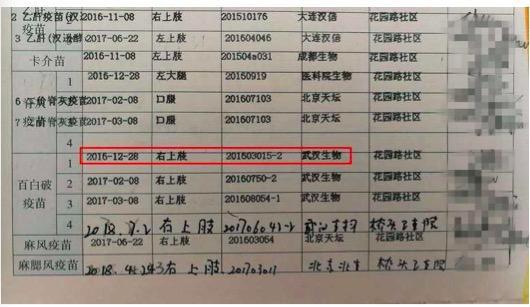 2 乙肝疫苗 2016-11-08 右上肢 201510176 大连汉信 花园路社区
3 乙肝 2017-06-22 左上肢 201604046 大连汉信 花园路社区
卡介苗 2016-11-08 左上肢 201504a031 成都生物 花园路社区
1 2016-12-28 左大腿 20160919 医科院生物 花园路社区
2017-02-08 口服 201607103 北京天坛 花园路社区
2017-03-08 口服 201607103 北京天坛 花园路社区
4
百白破疫苗 1 2016-12-28 右上肢 201603015-2 武汉生物 花园路社区
2 2017-02-08 右上肢 20160750-2 武汉生物 花园路社区
3 2017-03-08 右上肢 201608054-1 武汉生物 花园路社区
4 右上肢
麻风疫苗 2017-06-22 右上肢 201603054 北京天坛 花园路社区
麻腮风疫苗 右上肢 北京